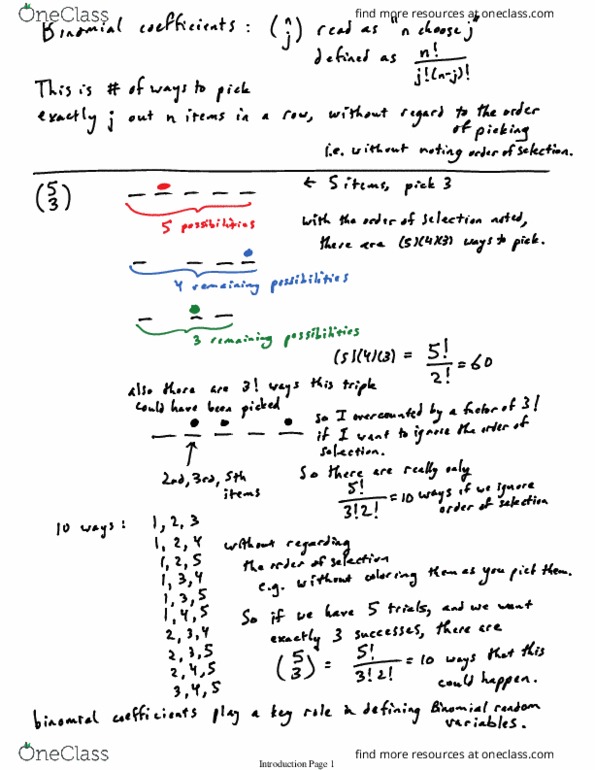 OneClass
find more resources at oneclass.com
Binomial coefficients : (n j) read as "n choose j"
defined as n! / j!(n-j)!
This is # of ways to pick
exactly j out n items in a row, without regard to the order
of picking
i.e. without noting order of selection.
(5 3)
← 5 items, pick 3
5 possibilities
with the order of selection noted,
there are (5)(4)(3) ways to pick.
4 remaining possibilities
3 remaining possibilities
(5)(4)(3) = 5!/2! = 60
also there are 3! ways this triple
could have been picked
so I overcounted by a factor of 3!
if I want to ignore the order of
selection.
2nd, 3rd, 5th
items
So there are really only
5!/3!2! = 10 ways if we ignore
order of selection
10 ways : 1, 2, 3
1, 2, 4
1, 2, 5
1, 3, 4
1, 3, 5
1, 4, 5
2, 3, 4
2, 3, 5
2, 4, 5
3, 4, 5
without regarding
the order of selection
e.g. without coloring them as you pick them.
So if we have 5 trials, and we want
exactly 3 successes, there are
(5 3) = 5!/3!2! = 10 ways that this
could happen.
binomial coefficients play a key role in defining Binomial random
variables.
OneClass
Introduction Page 1
find more resources at oneclass.com